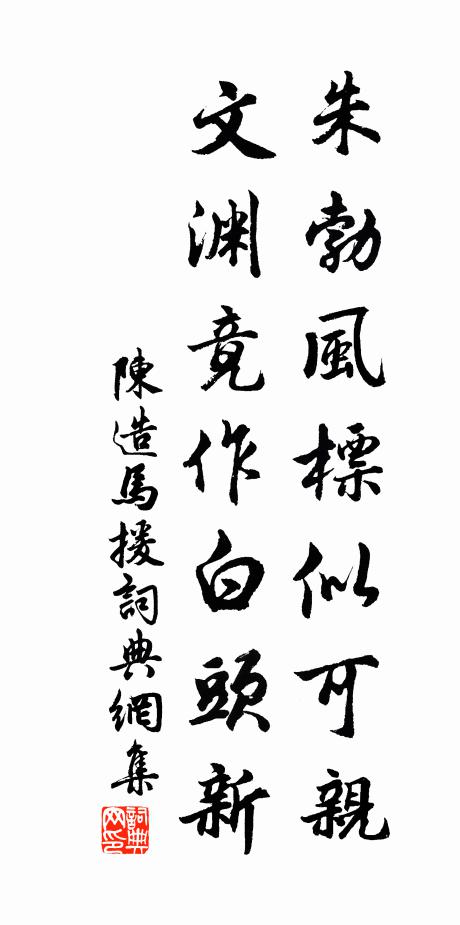 朱勃風標似可親
文渊竟作白頭新
陳造馬援詞典網集
詞典网印